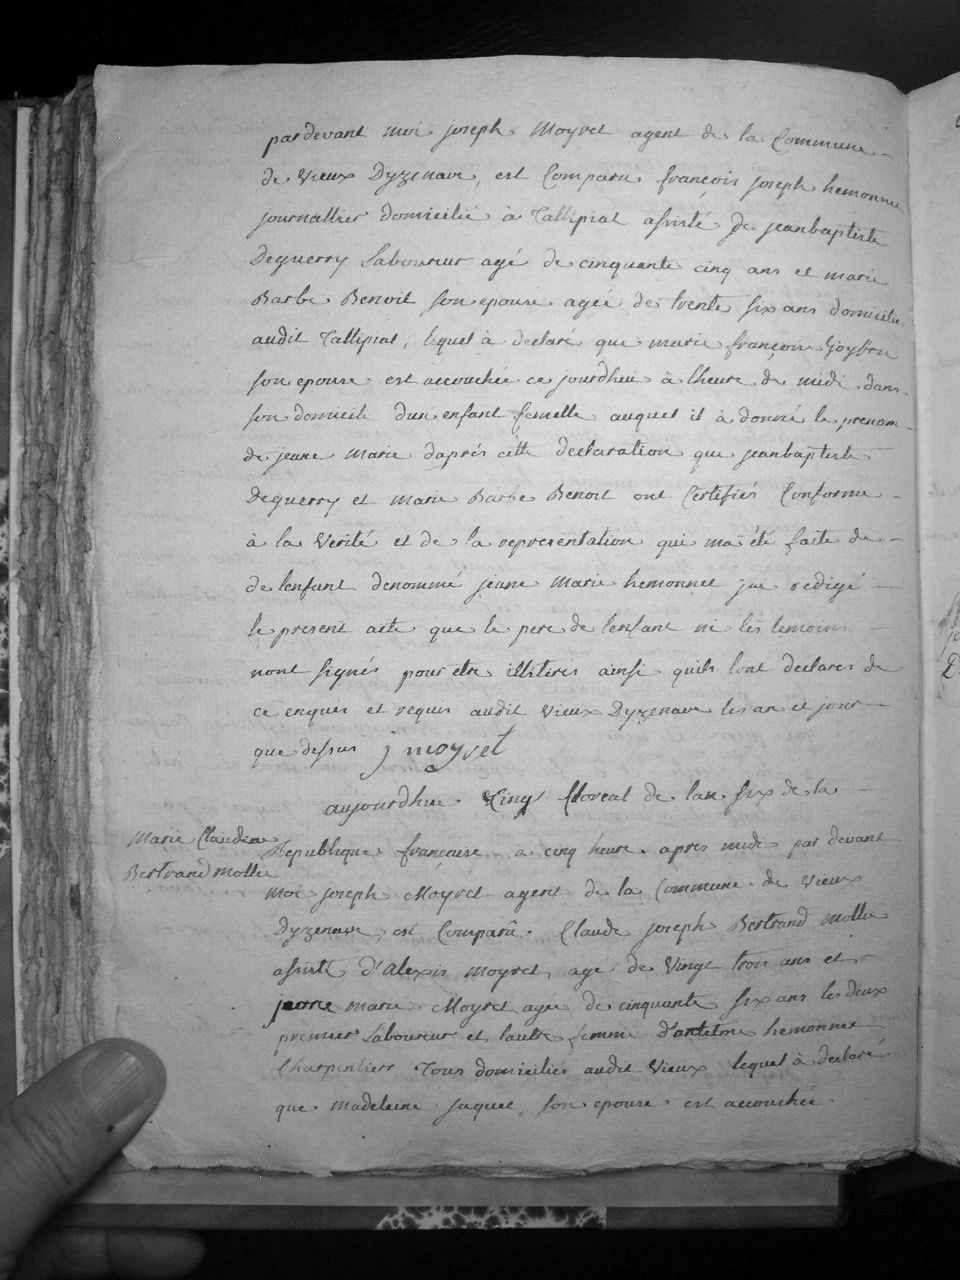 pardevant moi joseph Moyret agent de la Commune
de Vieux Dyzenave, est Comparu françois joseph hemonnet
journallier domicilié à Tallipiat assisté de jeanbaptiste
Deguerry Laboureur agé de cinquante cinq ans et marie
Barbe Benoit son epouse agée de trente six ans domiciliés
audit Tallipiat, lequel à declaré que marie françoise
son epouse est accouchée ce jourdhui à lheure de midi dans
son domicile dun enfant femelle auquel il à donné le prenom
de jeane Marie daprés cette declaration que jeanbaptiste
deguerry et Marie Barbe Benoit ont Certifiés Conforme
à la Verité et de la representation qui ma été faite de
de lenfant denommé jeane Marie hemonnet jai redigé
le present acte que le pere de lenfant ni les temoins
nont signés pour etre illiteres ainsi quils lont declarés de
ce enquis et requis audit Vieux Dyzenave les an et jour
que dessus j moyret
aujourdhui Vingt floreal de lan six de la
Marie Claudine
Bertrand Mollie
Republique françaisse a cinq heure apres midi par devant
moi joseph Moyret agent de la Commune de Vieux
Dyzenave, est Comparû Claude joseph Bertrand Mollie
assisté d'Alexis Moyret, age de Vingt trois ans et
marie Moyret agee de cinquante six ans les deux
premier Laboureur et lautre femme d'antelme hemonnet
Charpentiers Tous domiciliés audit Vieux lequel à declaré
que madeleine juquet son epouse est accouchée